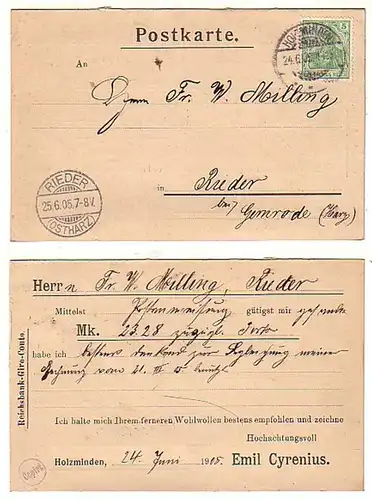 Postkarte.
HOLZMINDEN
24.6.05
5
An
Herrn Fr. W. Milling
in Rieder
bei Gernrode (Harz)
RIEDER
25.6.05.7-8V.
(OSTHARZ)
Herrn Fr. W. Milling, Rieder
Mittelst Postanweisung gütigst mir gesandte
Mk. 23.28 zuzügl. Porto
habe ich bestens dankend zur Begleichung meiner
Rechnung vom
Reichsbank-Giro-Conto.
Ich halte mich Ihrem ferneren Wohlwollen bestens empfohlen und zeichne
Hochachtungsvoll
Holzminden, 24 Juni 1905. Emil Cyrenius.